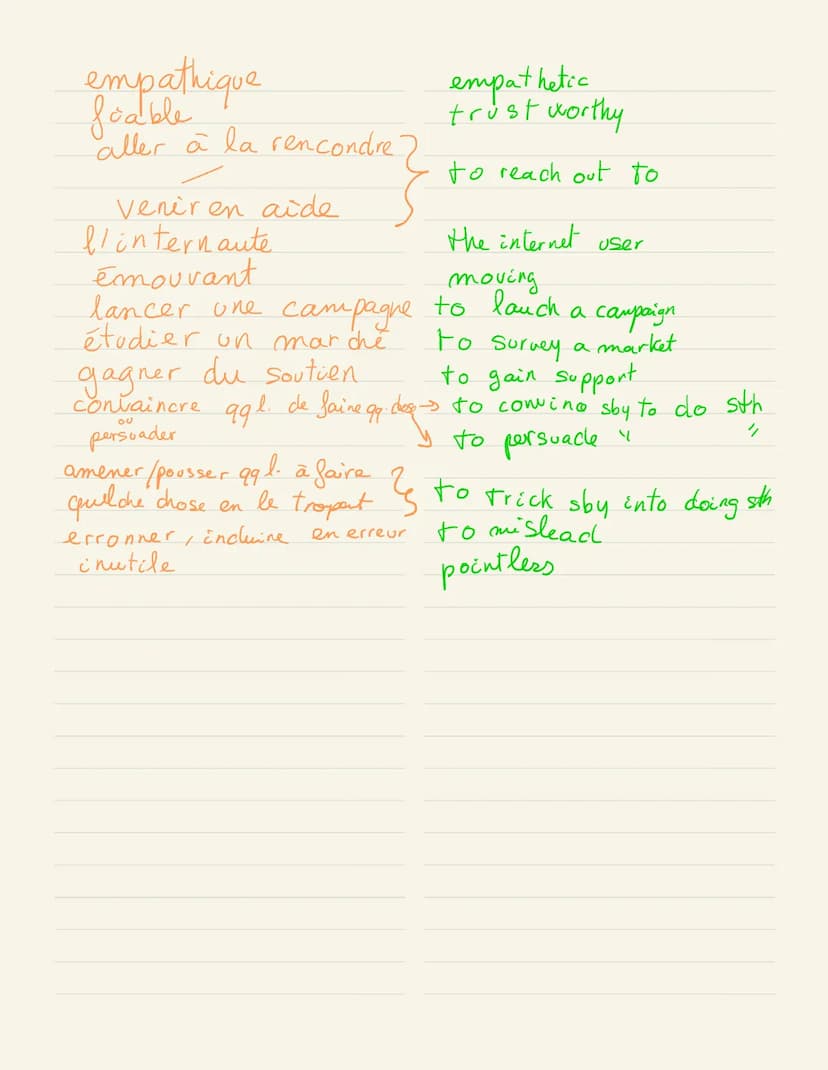 empathique empathetic
fiable trustworthy
aller à la rencondre
/ to reach out to
venir en aide
l'internaute the internet user
émouvant moving
lancer une campagne to lauch a campaign
étudier un marché to survey a market
gagner du soutien to gain support
convaincre qql. de faire qq. chose → to sby to do sth
ou
persuader to persuade " "
amener/pousser qql. à faire
quelche chose en le to trick sby into doing sth
erronner, induire en erreur to mislead
inutile pointless